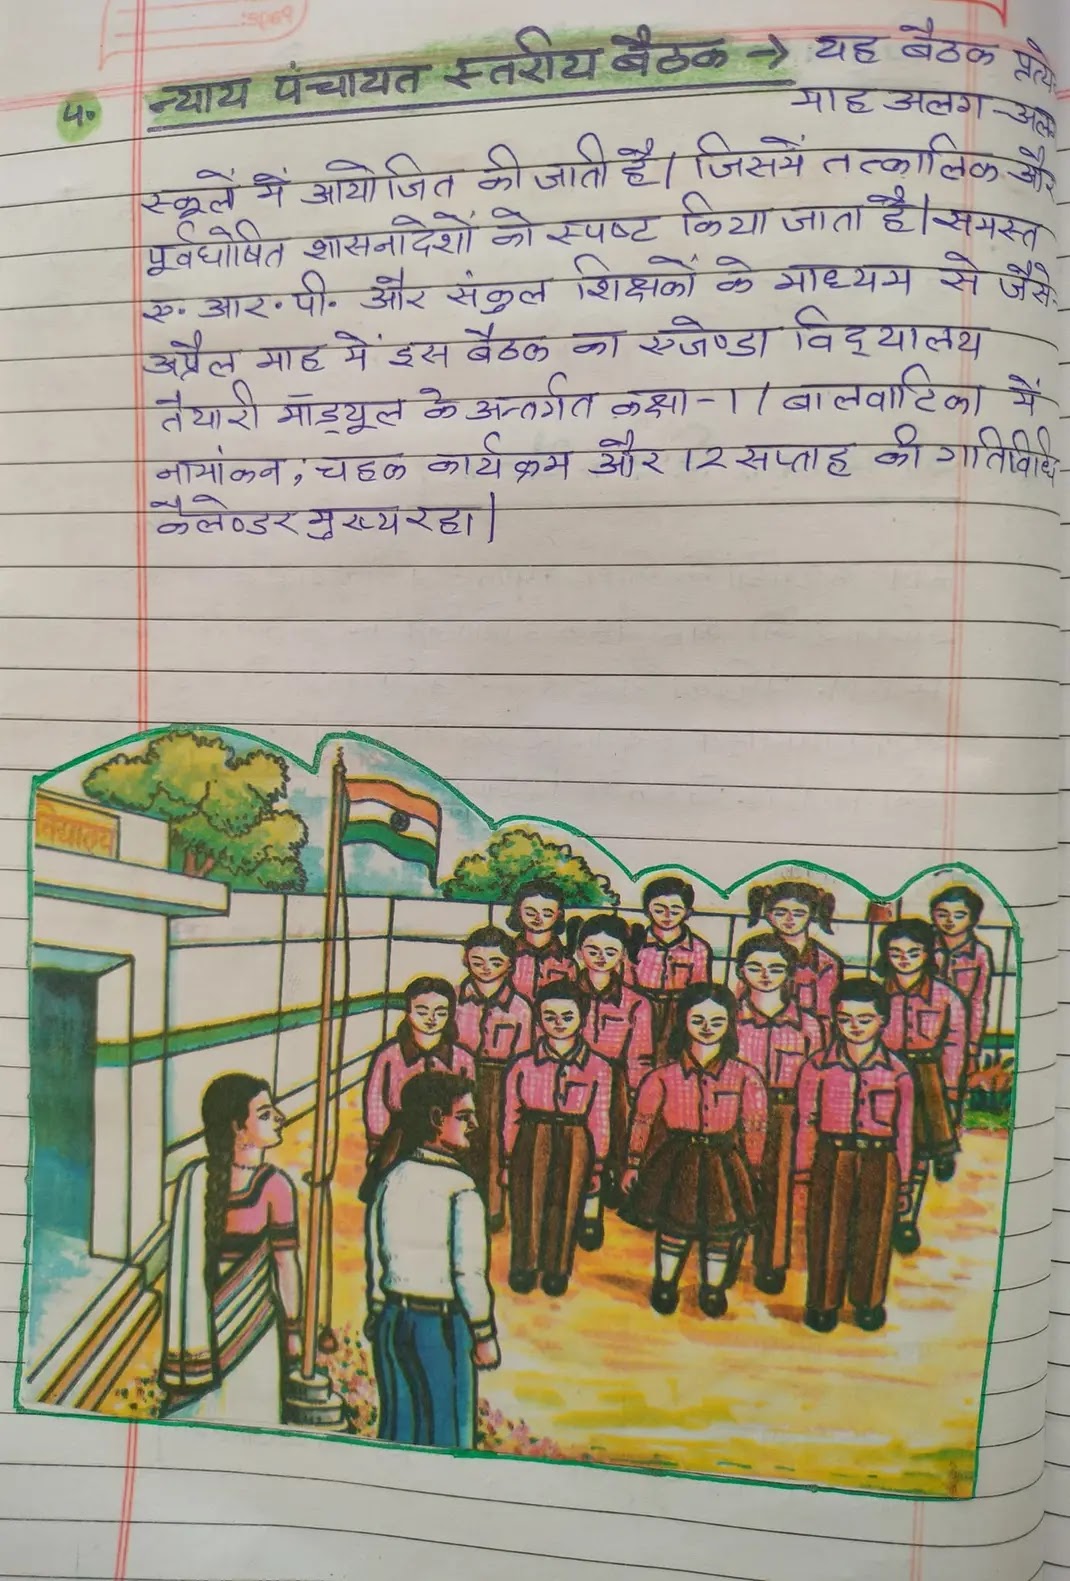 Page:
५. न्याय पंचायत स्तरीय बैठक → यह बैठक प्रत्ये
माह अलग-अल
स्कूलें में आयोजित की जाती है। जिसमें तत्कालिक और
पूर्वघोषित शासनादेशों को स्पष्ट किया जाता है। समस्त
ए. आर. पी. और संकुल शिक्षकों के माध्यम से जैसे-
अप्रैल माह में इस बैठक का एजेण्डा विद्यालय
तैयारी मॉड्यूल के अन्तर्गत कक्षा-1 / बालवाटिका में
नामांकन, चहक कार्यक्रम और 12 सप्ताह की गातिविधि
कैलेण्डर मुख्य रहा।
विद्यालय